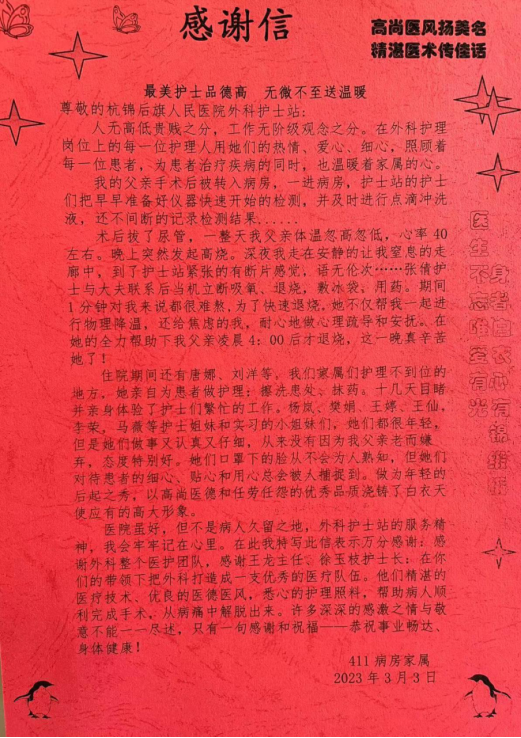 感谢信
高尚医风扬美名
精湛医术传佳话
最美护士品德高 无微不至送温暖
尊敬的杭锦后旗人民医院外科护士站:
人无高低贵贱之分，工作无阶级观念之分。在外科护理
岗位上的每一位护理人用她们的热情、爱心、细心，照顾着
每一位患者，为患者治疗疾病的同时，也温暖着家属的心。
我的父亲手术后被转入病房，一进病房，护士站的护士
们把早早准备好仪器快速开始的检测，并及时进行点滴冲洗
液，还不间断的记录检测结果......
术后拔了尿管，一整天我父亲体温忽高忽低，心率 40
左右。晚上突然发起高烧。深夜我走在安静的让我窒息的走
廊中，到了护士站紧张的有断片感觉，语无伦次……张倩护
士与大夫联系后当机立断吸氧、退烧，敷冰袋、用药。期间
1 分钟对我来说都很难熬,为了快速退烧,她不仅帮我一起进
行物理降温，还给焦虑的我，耐心地做心理疏导和安抚。在
她的全力帮助下我父亲凌晨 4：00 后才退烧，这一晚真辛苦
她了！
住院期间还有唐娜、刘洋等，我们家属们护理不到位的
地方，她亲自为患者做护理：擦洗患处、抹药。十几天目睹
并亲身体验了护士们繁忙的工作，杨岚、樊娟、王婷、王仙，
李荣，马薇等护士姐妹和实习的小姐妹们，她们都很年轻，
但是她们做事又认真又仔细，从来没有因为我父亲老而嫌
弃，态度特别好。她们口罩下的脸从不会为人熟知，但她们
对待患者的细心、贴心和用心总会被人捕捉到。做为年轻的
后起之秀，以高尚医德和任劳任怨的优秀品质浇铸了白衣天
使应有的高大形象。
医院虽好，但不是病人久留之地，外科护士站的服务精
神，我会牢牢记在心里。在此我特写此信表示万分感谢：感
谢外科整个医护团队，感谢王龙主任、徐玉枝护士长：在你
们的带领下把外科打造成一支优秀的医疗队伍。他们精湛的
医疗技术、优良的医德医风，悉心的护理照料，帮助病人顺
利完成手术，从病痛中解脱出来。许多深深的感激之情与敬
意不能一一尽述，只有一句感谢和祝福——恭祝事业畅达、
身体健康！
411 病房家属
2023 年 3 月 3 日
身着白衣心有锦
医生不忘唯爱有光